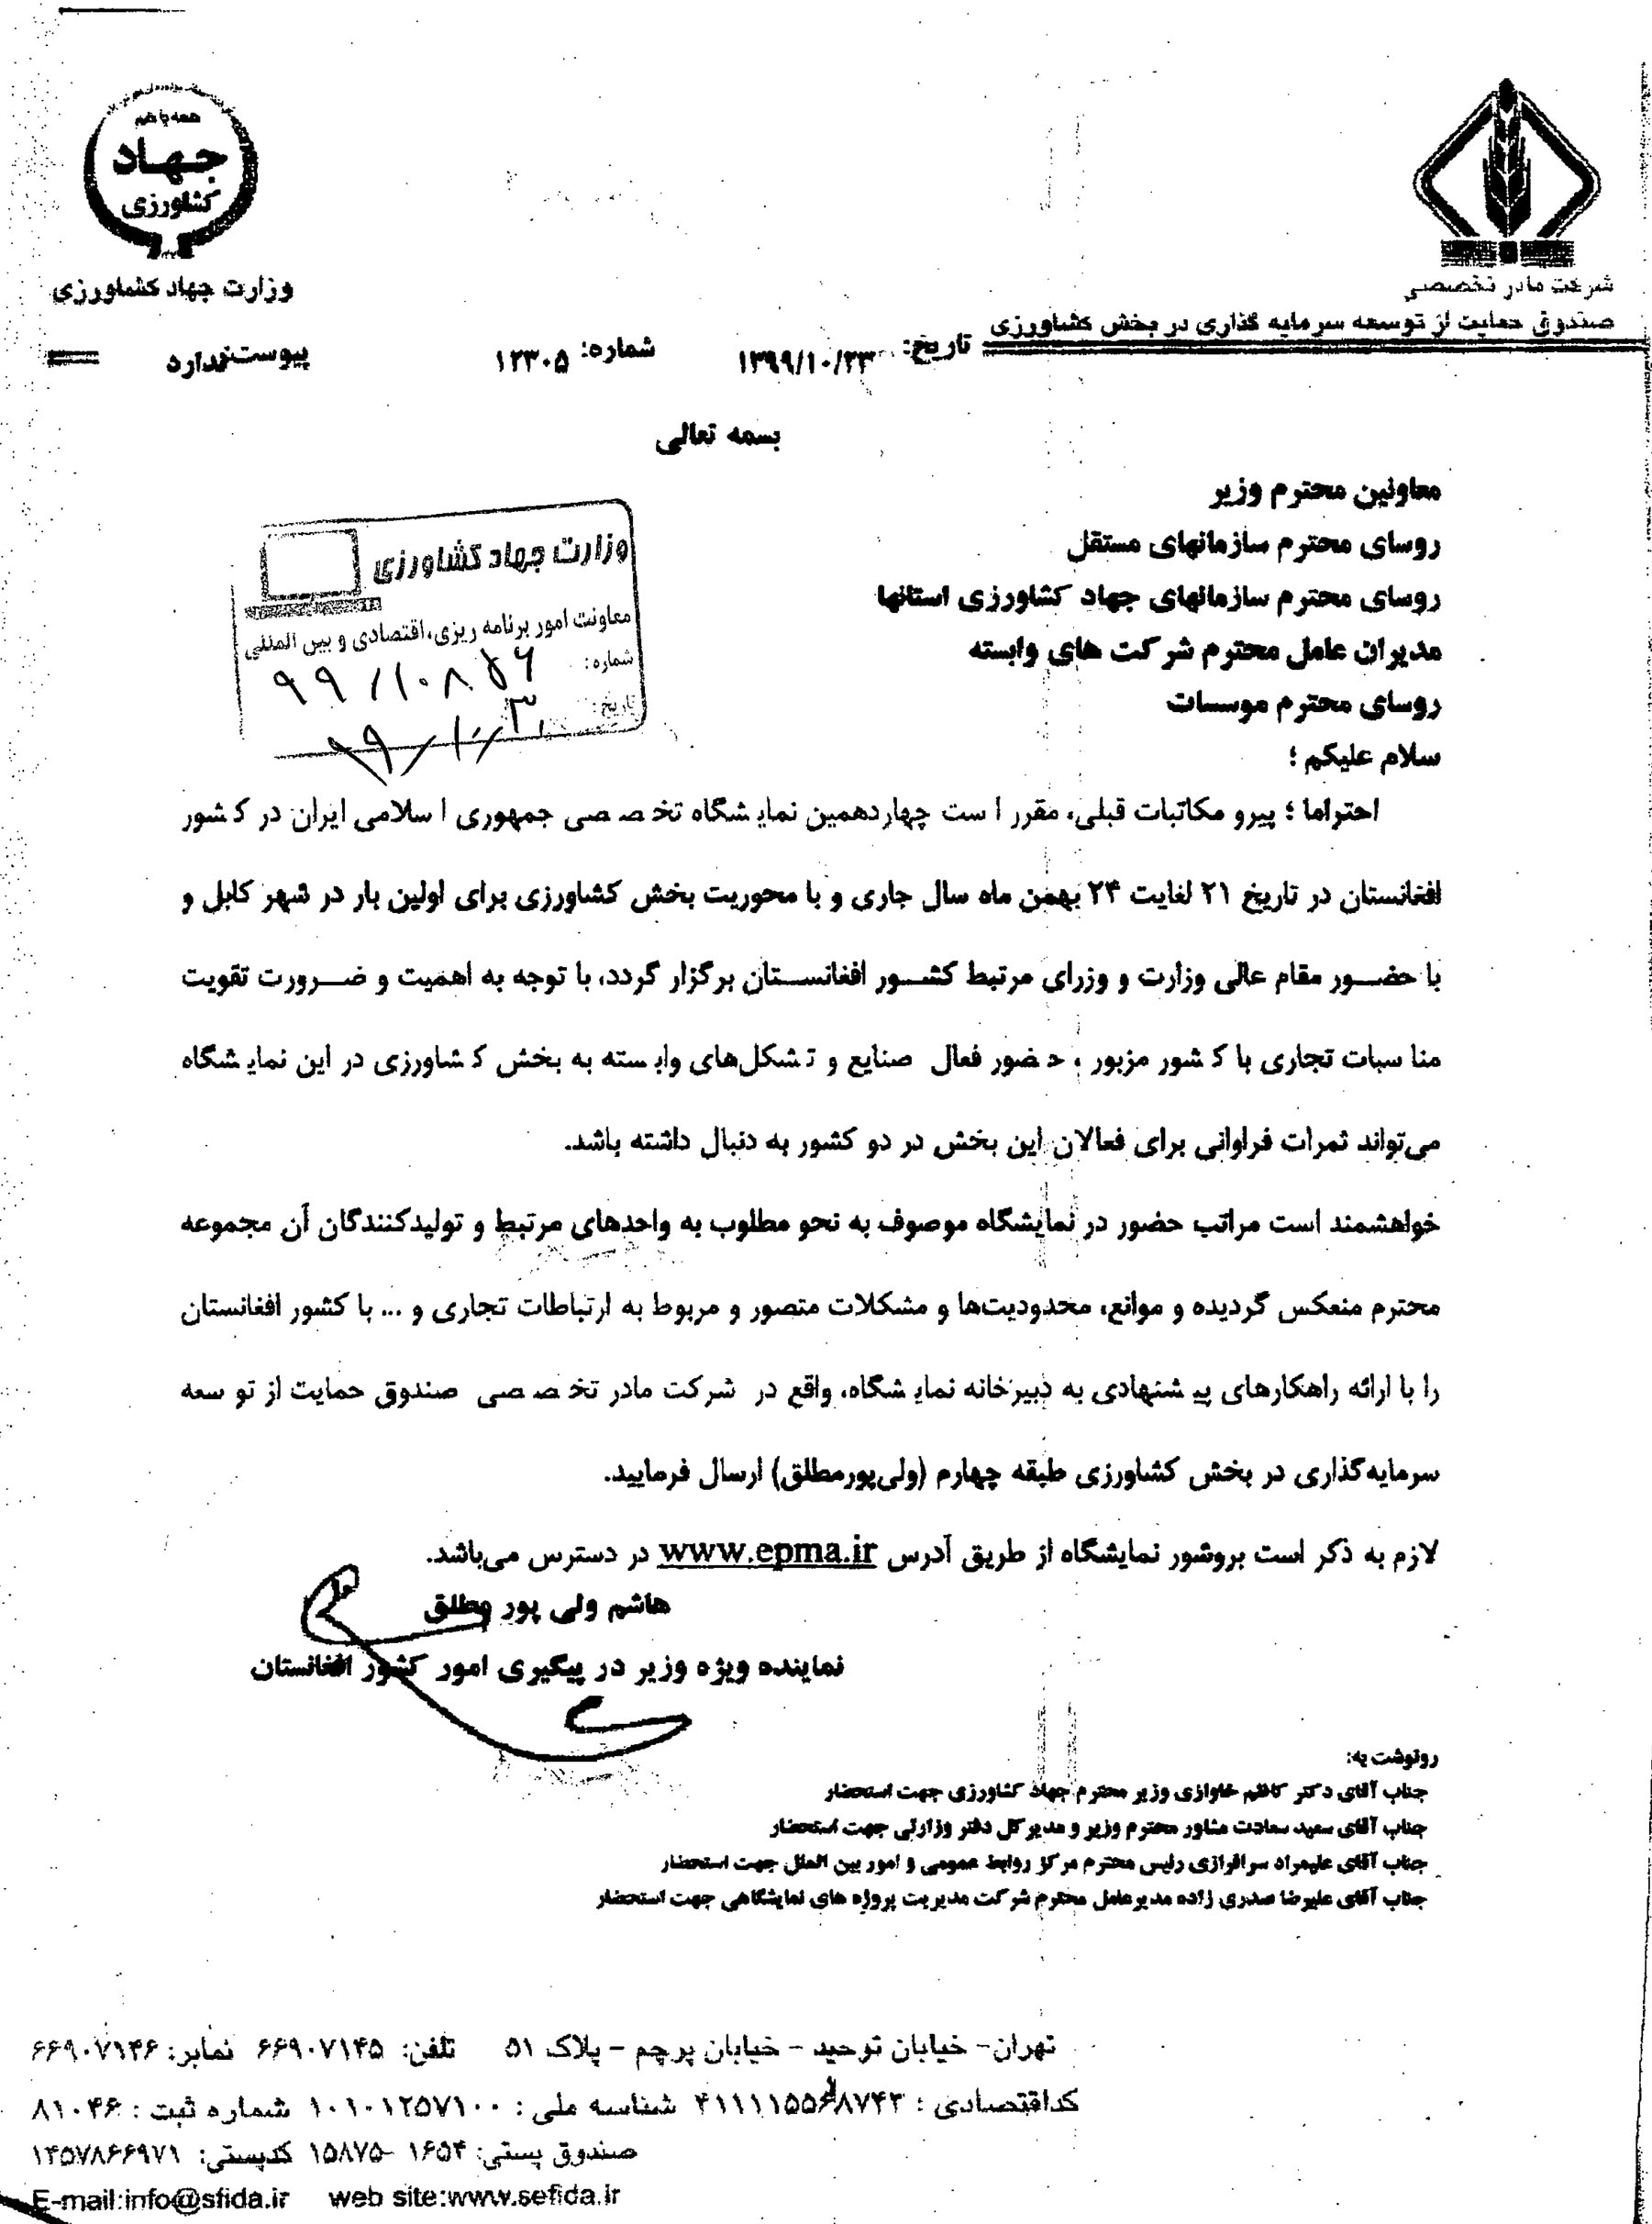 همه با هم
جهاد
کشاورزی
وزارت جهاد کشاورزی
شرکت مادر تخصصی
صندوق حمایت از توسعه سرمایه گذاری در بخش کشاورزی
تاریخ: ۱۳۹۹/۱۰/۲۳ شماره: ۱۲۳۰۵ پیوست: ندارد
بسمه تعالی
وزارت جهاد کشاورزی
معاونت امور برنامه ریزی، اقتصادی و بین المللی
شماره:
تاریخ:
معاونین محترم وزیر
روسای محترم سازمانهای مستقل
روسای محترم سازمانهای جهاد کشاورزی استانها
مدیران عامل محترم شرکت های وابسته
روسای محترم موسسات
سلام علیکم ؛
احتراما ؛ پیرو مکاتبات قبلی، مقرر است چهاردهمین نمایشگاه تخصصی جمهوری اسلامی ایران در کشور
افغانستان در تاریخ ۲۱ لغایت ۲۴ بهمن ماه سال جاری و با محوریت بخش کشاورزی برای اولین بار در شهر کابل و
با حضور مقام عالی وزارت و وزرای مرتبط کشور افغانستان برگزار گردد، با توجه به اهمیت و ضرورت تقویت
مناسبات تجاری با کشور مزبور ، حضور فعال صنایع و تشکل‌های وابسته به بخش کشاورزی در این نمایشگاه
می‌تواند ثمرات فراوانی برای فعالان این بخش در دو کشور به دنبال داشته باشد.
خواهشمند است مراتب حضور در نمایشگاه موصوف به نحو مطلوب به واحدهای مرتبط و تولیدکنندگان آن مجموعه
محترم منعکس گردیده و موانع، محدودیت‌ها و مشکلات متصور و مربوط به ارتباطات تجاری و ... با کشور افغانستان
را با ارائه راهکارهای پیشنهادی به دبیرخانه نمایشگاه، واقع در شرکت مادر تخصصی صندوق حمایت از توسعه
سرمایه‌گذاری در بخش کشاورزی طبقه چهارم (ولی‌پورمطلق) ارسال فرمایید.
لازم به ذکر است بروشور نمایشگاه از طریق آدرس www.epma.ir در دسترس می‌باشد.
هاشم ولی پور مطلق
نماینده ویژه وزیر در پیگیری امور کشور افغانستان
رونوشت به:
جناب آقای دکتر کاظم خاوازی وزیر محترم جهاد کشاورزی جهت استحضار
جناب آقای سعید سعادت مشاور محترم وزیر و مدیر کل دفتر وزارتی جهت استحضار
جناب آقای علیمراد سرافرازی رئیس محترم مرکز روابط عمومی و امور بین الملل جهت استحضار
جناب آقای علیرضا صدری زاده مدیرعامل محترم شرکت مدیریت پروژه های نمایشگاهی جهت استحضار
تهران- خیابان توحید - خیابان پرچم - پلاک ۵۱ تلفن: ۶۶۹۰۷۱۴۵ نمابر: ۶۶۹۰۷۱۴۶
کداقتصادی : شناسه ملی : ۱۰۱۰۱۲۵۷۱۰۰ شماره ثبت : ۸۱۰۴۶
صندوق پستی: ۱۶۵۴ -۱۵۸۷۵ کدپستی: ۱۴۵۷۸۶۶۹۷۱
E-mail:info@sfida.ir web site:www.sefida.ir